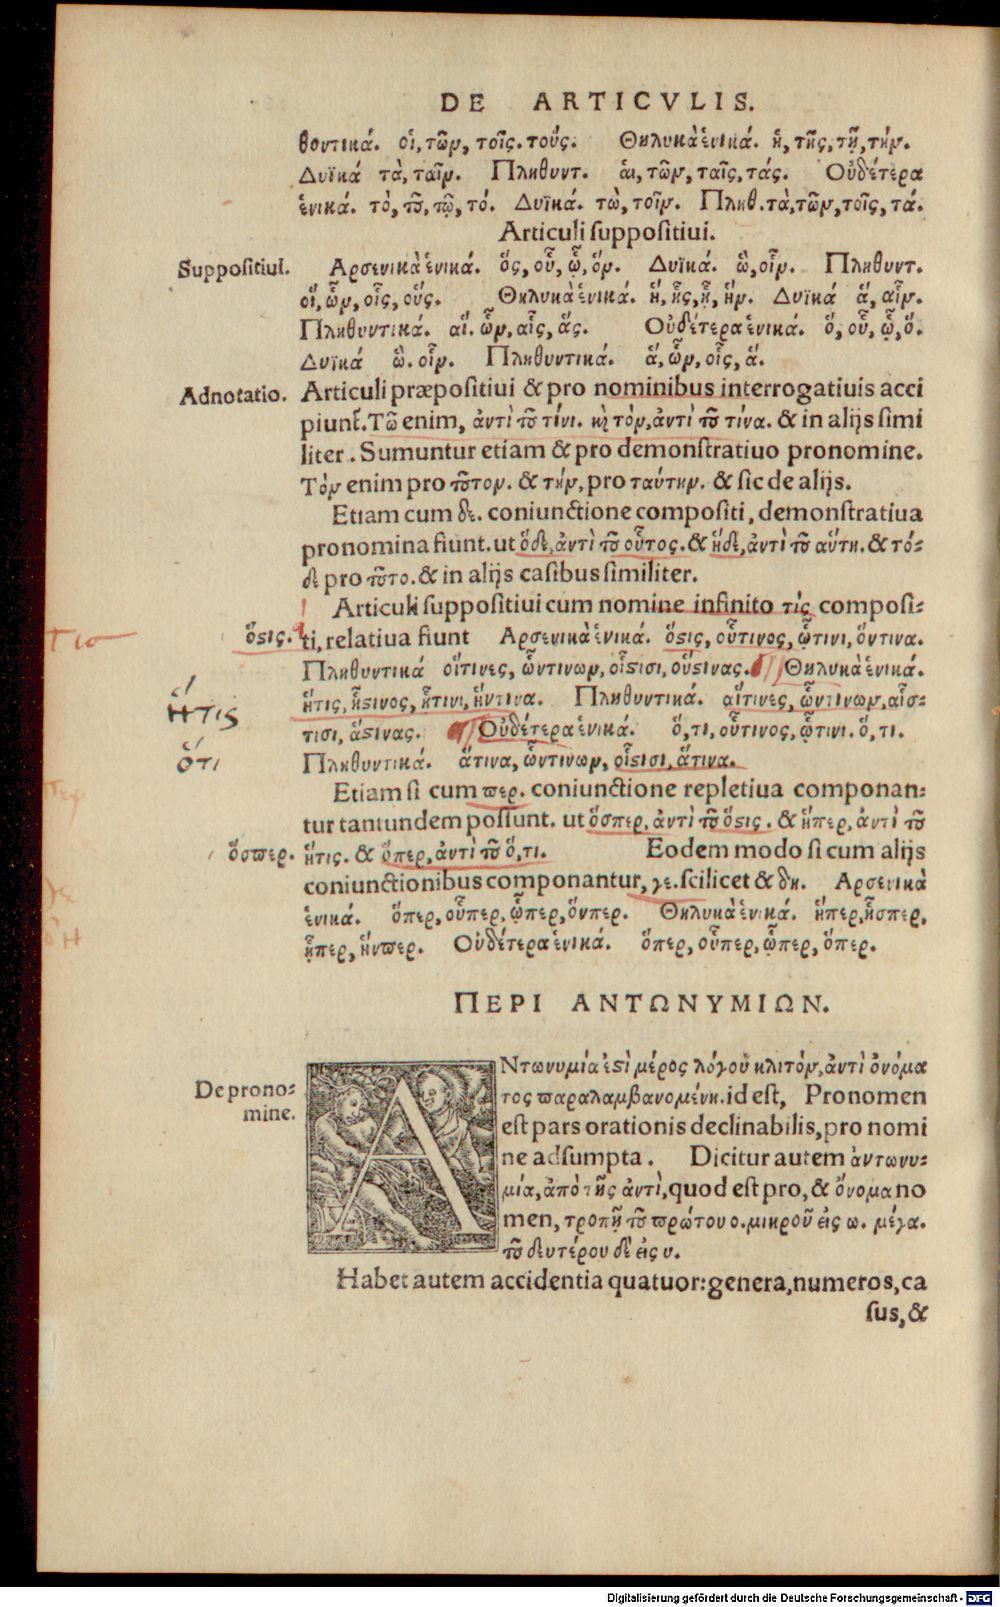 DE ARTICVLIS.
θοντικά. οἱ, τῶν, τοῖς. τούς. Θηλυκὰ ἑνικά. ἡ, τῆς, τῇ, τήν.
Δυϊκά τὰ, ταῖν. Πληθυντ. ἁι, τῶν, ταῖς, τάς. Οὐδέτερα
ἑνικά. τὸ, τοῦ, τῷ, τό. Δυϊκά. τὼ, τοῖν. Πληθ. τὰ, τῶν, τοῖς, τά.
Articuli suppositiui.
Suppositiui. Αρσενικὰ ἑνικά. ὅς, οὗ, ᾧ, ὅν. Δυϊκά. ὣ, οἷν. Πληθυντ.
οἵ, ὧν, οἷς, οὕς. Θηλυκὰ ἑνικά. ἥ, ἧς, ᾗ, ἥν. Δυϊκά ἅ, αἷν.
Πληθυντικά. αἵ. ὧν, αἷς, ἅς. Οὐδέτερα ἑνικά. ὅ, οὗ, ᾧ, ὅ.
Δυϊκά ὣ. οἷν. Πληθυντικά. ἅ, ὧν, οἷς, ἅ.
Adnotatio. Articuli præpositiui & pro nominibus interrogatiuis acci
piunt᷒. Τῶ enim, ἀντὶ τοῦ τίνι. καὶ τὸν, ἀντὶ τοῦ τίνα. & in alijs simi
liter. Sumuntur etiam & pro demonstratiuo pronomine.
Τὸν enim pro τοῦτον. & τήν, pro ταύτην. & sic de alijs.
Etiam cum δε. coniunctione compositi, demonstratiua
pronomina fiunt. ut ὅδε, ἀντὶ τοῦ οὗτος. & ἥδε, ἀντὶ τοῦ αὕτη. & τό-
δε pro τοῦτο. & in alijs casibus similiter.
Articuli suppositiui cum nomine infinito τὶς composi-
ὅστις. ti, relatiua fiunt Αρσενικὰ ἑνικά. ὅστις, οὗτινος, ᾧτινι, ὅντινα.
Πληθυντικά οἵτινες, ὧντινων, οἷστισι, οὕστινας. Θηλυκὰ ἑνικά.
ἥτις
ἥτις, ἧστινος, ᾗτινι, ἥντινα. Πληθυντικά. αἵτινες, ὧντινων, αἷσ-
τισι, ἅστινας. Οὐδέτερα ἑνικά. ὅ, τι, οὗτινος, ᾧτινι. ὅ, τι.
ὅτι
Πληθυντικά. ἅτινα, ὧντινων, οἷστισι, ἅτινα.
Etiam si cum περ. coniunctione repletiua componan-
tur tantundem possunt. ut ὅσπερ, ἀντὶ τοῦ ὅστις. & ἥπερ, ἀντὶ τοῦ
ὅσπερ. ἥτις. & ὅπερ, ἀντὶ τοῦ ὅ, τι. Eodem modo si cum alijs
coniunctionibus componantur, γε. scilicet & δη. Αρσενικὰ
ἑνικά. ὅπερ, οὗπερ, ᾧπερ, ὅνπερ. Θηλυκὰ ἑνικά. ἥπερ, ἧσπερ,
ᾗπερ, ἥνπερ. Οὐδέτερα ἑνικά. ὅπερ, οὗπερ, ᾧπερ, ὅπερ.
ΠΕΡΙ ΑΝΤΩΝΥΜΙΩΝ.
De prono-
mine.
ΑΝτωνυμία ἐστὶ μέρος λόγου κλιτὸν, ἀντὶ ὀνόμα
τος παραλαμβανομένη. id est, Pronomen
est pars orationis declinabilis, pro nomi
ne adsumpta. Dicitur autem ἀντωνυ-
μία, ἀπὸ τῆς ἀντὶ, quod est pro, & ὄνομα no
men, τροπῇ τοῦ πρώτου ο. μικροῦ εἰς ω. μέγα.
τοῦ δευτέρου δὲ εἰς υ.
Habet autem accidentia quatuor: genera, numeros, ca
sus, &
Digitalisierung gefördert durch die Deutsche Forschungsgemeinschaft - DFG